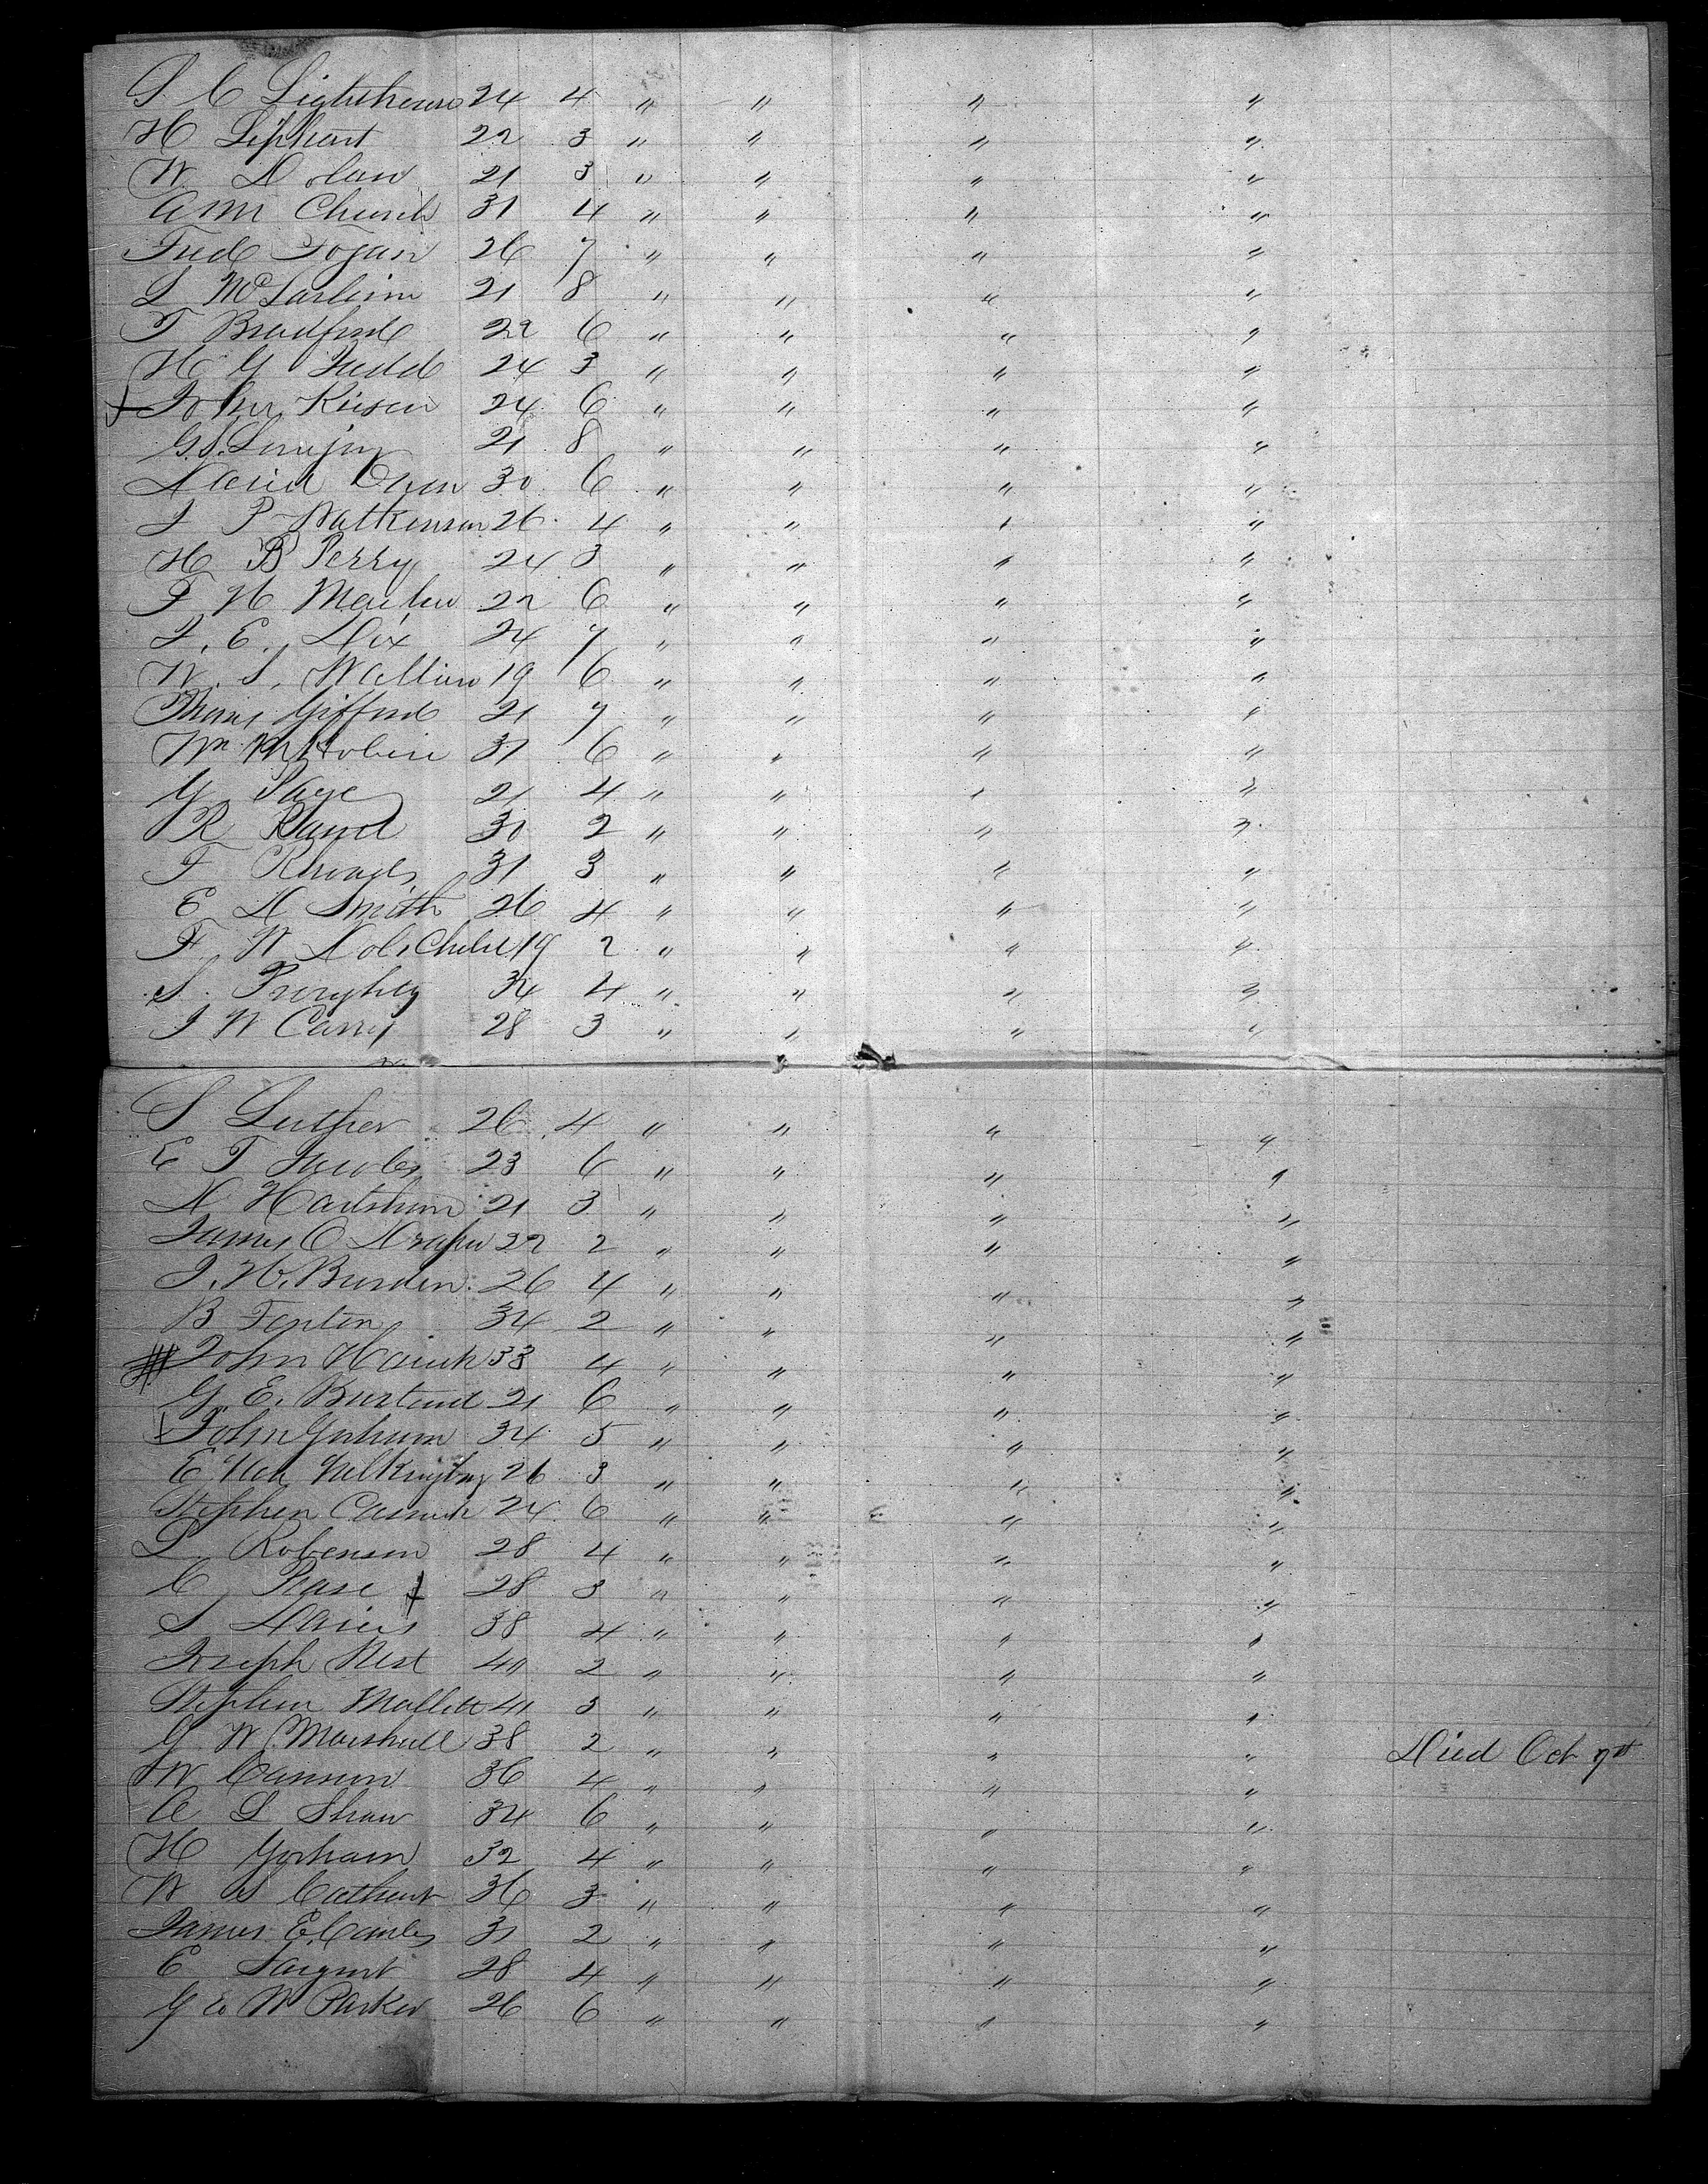 S C Lighthouse 24 4 " " " "
H Liphart 22 3 " " " "
W Dolan 21 3 " " " "
A M Church 31 4 " " " "
Fred 26 7 " " " "
L 21 8 " " " "
T Bradford 22 6 " " " "
H G Judd 24 3 " " " "
John 24 6 " " " "
G. S. Lovejoy 21 8 " " " "
David 30 6 " " " "
J P Watkinson 26 4 " " " "
H B Perry 24 3 " " " "
F H 22 6 " " " "
J. E. Dix 24 7 " " " "
W. S. 19 6 " " " "
Gifford 21 7 " " " "
Wm 31 6 " " " "
G Page 21 4 " " " "
R Rand 30 2 " " " "
F Rhoads 31 3 " " " "
E D Smith 26 4 " " " "
F. W 19 2 " " " "
S. 34 4 " " " "
J W 28 3 " " " "
S Luther 26 4 " " " "
E T Jacobs 23 6 " " " "
N Hartshorn 21 3 " " " "
James C Draper 22 2 " " " "
J. H. Burden 26 4 " " " "
B Fenton 34 2 " " " "
John 33 4 " " " "
G. E. 21 6 " " " "
John Graham 34 5 " " " "
E 26 3 " " " "
Stephen 24 6 " " " "
L Robenson 28 4 " " " "
C Pease 28 3 " " " "
S Davis 38 4 " " " "
Joseph West 40 2 " " " "
Stephen Mallett 41 3 " " " "
G. W. Marshall 38 2 " " " " Died Oct 7th
W Cannon 36 4 " " " "
A L Shaw 34 6 " " " "
H Gorham 32 4 " " " "
W S Cathcart 36 3 " " " "
James E. 31 2 " " " "
E Sargent 28 4 " " " "
Geo W Parker 26 6 " " " "